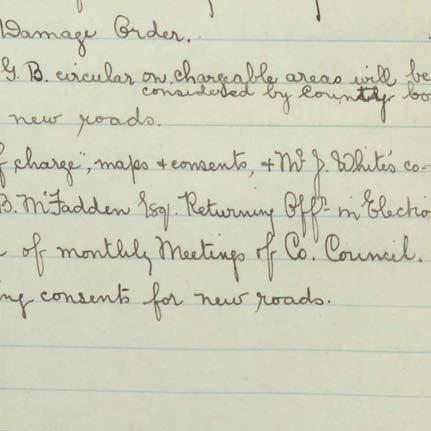 Damage Order.
G. B. circular on chargeable areas will be
considered by County bo
new roads.
f charge", maps & consents, & Mr J. White's co-
B. McFadden Esq. Returning Offr in Electio
of monthly Meetings of Co. Council.
ng consents for new roads.